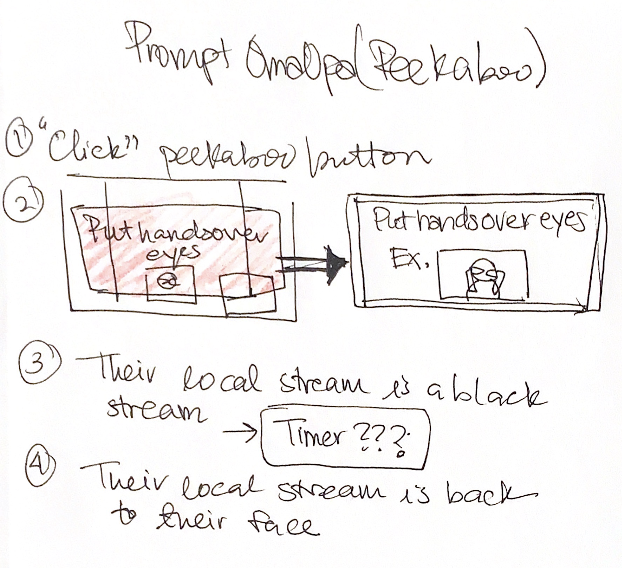 Prompt OmaOpa (Peekaboo)
① "Click" peekaboo button
②
Put hands over
eyes
Put hands over eyes
Ex.
③ Their local stream is a black
stream → Timer ???
④ Their local stream is back
to their face